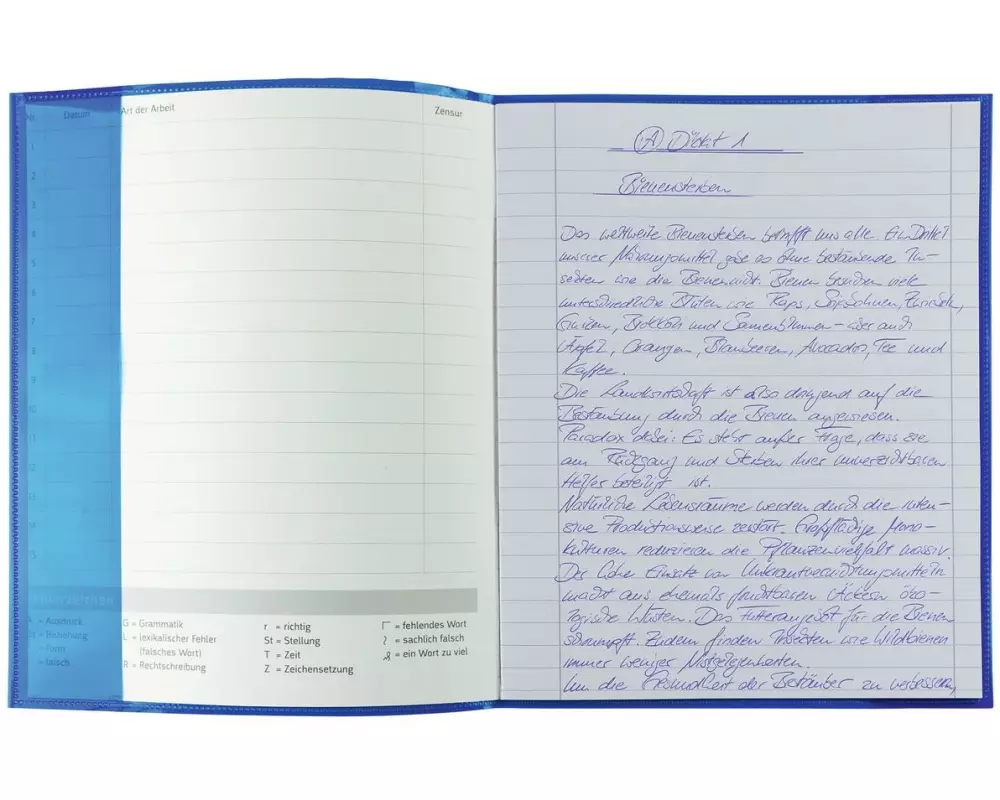 Nr. Datum Art der Arbeit Zensur
1
2
3
4
5
6
7
8
9
10
11
12
13
14
15
Korrekturzeichen
A = Ausdruck G = Grammatik r = richtig = fehlendes Wort
Bz = Beziehung L = lexikalischer Fehler St = Stellung = sachlich falsch
= Form (falsches Wort) T = Zeit = ein Wort zu viel
= falsch R = Rechtschreibung Z = Zeichensetzung
A Diktat 1
Bienensterben
Das weltweite Bienensterben betrifft uns alle. Ein Drittel
unserer Nahrungsmittel gäbe es ohne bestäubende In-
sekten wie die Biene nicht. Bienen brauchen viele
unterschiedliche Blüten wie Raps, Sojabohnen, Zwiebeln,
Gurken, Brokkoli und Sonnenblumen – aber auch
Äpfel, Orangen, Blaubeeren, Avocados, Tee und
Kaffee.
Die Landwirtschaft ist also dringend auf die
Bestäubung durch die Bienen angewiesen.
Paradox dabei: Es steht außer Frage, dass sie
am Rückgang und Sterben ihrer unverzichtbaren
Helfer beteiligt ist.
Natürliche Lebensräume werden durch die inten-
sive Produktionsweise zerstört. Großflächige Mono-
kulturen reduzieren die Pflanzenvielfalt massiv.
Der hohe Einsatz von Unkrautvernichtungsmitteln
macht aus ehemals fruchtbaren Äckern öko-
logische Wüsten. Das Futterangebot für die Bienen
schrumpft. Zudem finden Insekten wie Wildbienen
immer weniger Nistgelegenheiten.
Um die Gesundheit der Bestäuber zu verbessern,